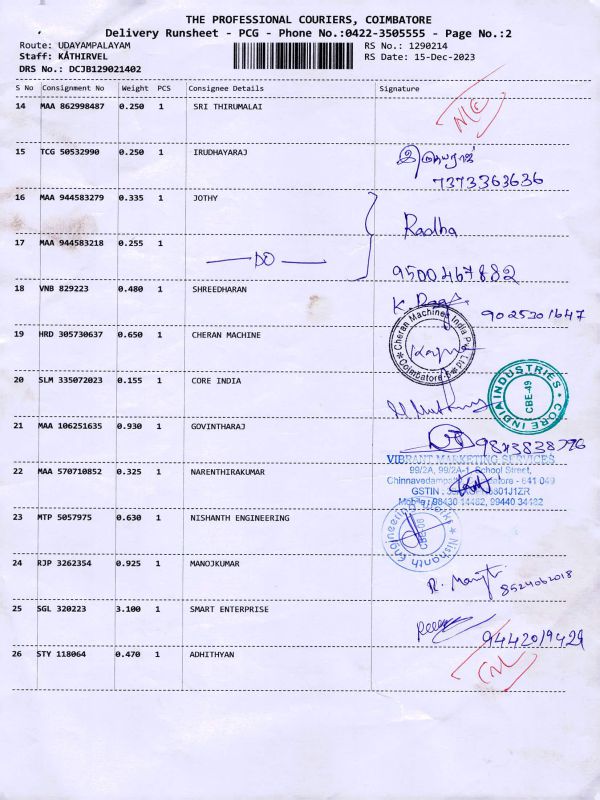 THE PROFESSIONAL COURIERS, COIMBATORE
Delivery Runsheet - PCG - Phone No.:0422-3505555 - Page No.:2
Route: UDAYAMPALAYAM RS No.: 1290214
Staff: KATHIRVEL RS Date: 15-Dec-2023
DRS No.: DCJB129021402
S No Consignment No Weight PCS Consignee Details Signature
14 MAA 862998487 0.250 1 SRI THIRUMALAI
15 TCG 50532990 0.250 1 IRUDHAYARAJ
7373363636
16 MAA 944583279 0.335 1 JOTHY
Radha
17 MAA 944583218 0.255 1
DO
9500467882
18 VNB 829223 0.480 1 SHREEDHARAN
9025301647
19 HRD 305730637 0.650 1 CHERAN MACHINE
Cheran Machines India
Coimbatore
20 SLM 335072023 0.155 1 CORE INDIA
CORE INDIA INDUSTRIES
CBE-49
21 MAA 106251635 0.930 1 GOVINTHARAJ
22 MAA 570710852 0.325 1 NARENTHIRAKUMAR
VIBRANT MARKETING SERVICES
99/2A, 99/2A-1, School Street,
641 049
GSTIN
Mobile: 98430 14482, 99440 34482
23 MTP 5057975 0.630 1 NISHANTH ENGINEERING
Nishanth Engineering Works
24 RJP 3262354 0.925 1 MANOJKUMAR
8524062018
25 SGL 320223 3.100 1 SMART ENTERPRISE
9442019429
26 STY 118064 0.470 1 ADHITHYAN